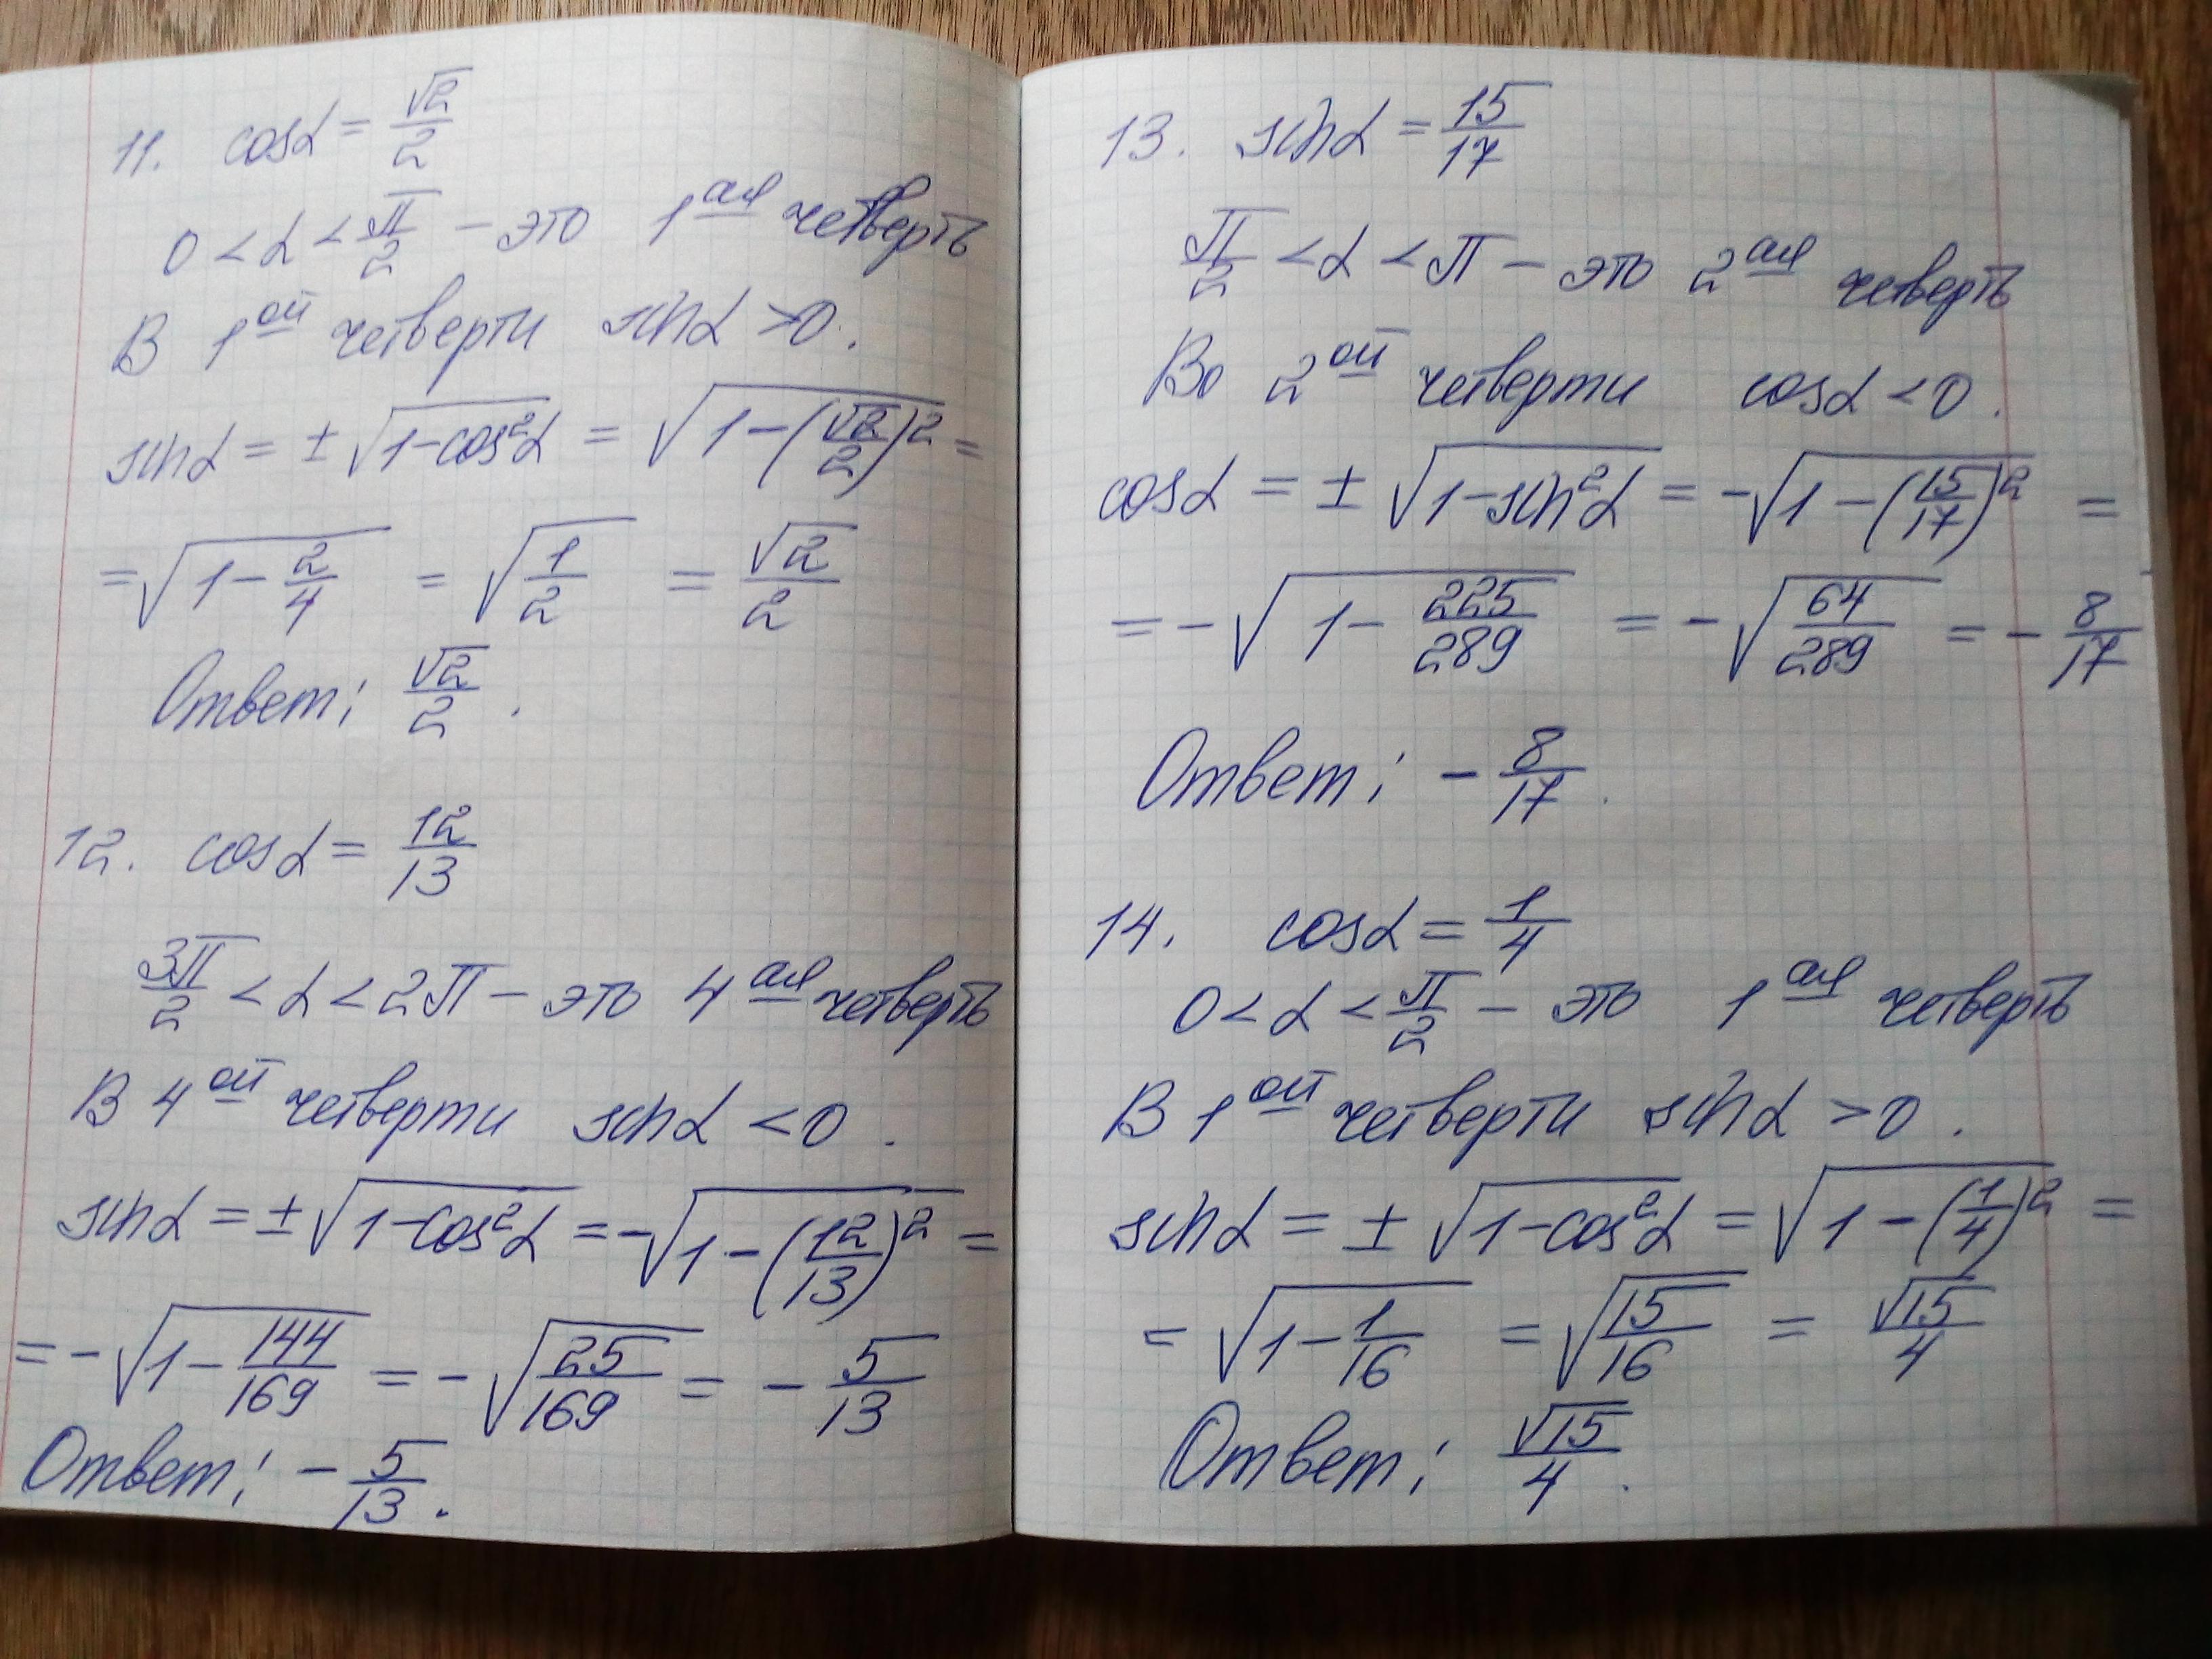 11. cosα = √2/2
0 < α < π/2 – это 1ая четверть
В 1ой четверти sinα > 0.
sinα = ±√(1-cos²α) = √(1-(√2/2)²) =
= √(1-2/4) = √(1/2) = √2/2
Ответ: √2/2.
12. cosα = 12/13
3π/2 < α < 2π – это 4ая четверть
В 4ой четверти sinα < 0.
sinα = ±√(1-cos²α) = -√(1-(12/13)²) =
= -√(1-144/169) = -√(25/169) = -5/13
Ответ: -5/13.
13. sinα = 15/17
π/2 < α < π – это 2ая четверть
Во 2ой четверти cosα < 0.
cosα = ±√(1-sin²α) = -√(1-(15/17)²) =
= -√(1-225/289) = -√(64/289) = -8/17
Ответ: -8/17.
14. cosα = 1/4
0 < α < π/2 – это 1ая четверть
В 1ой четверти sinα > 0.
sinα = ±√(1-cos²α) = √(1-(1/4)²) =
= √(1-1/16) = √(15/16) = √15/4
Ответ: √15/4.